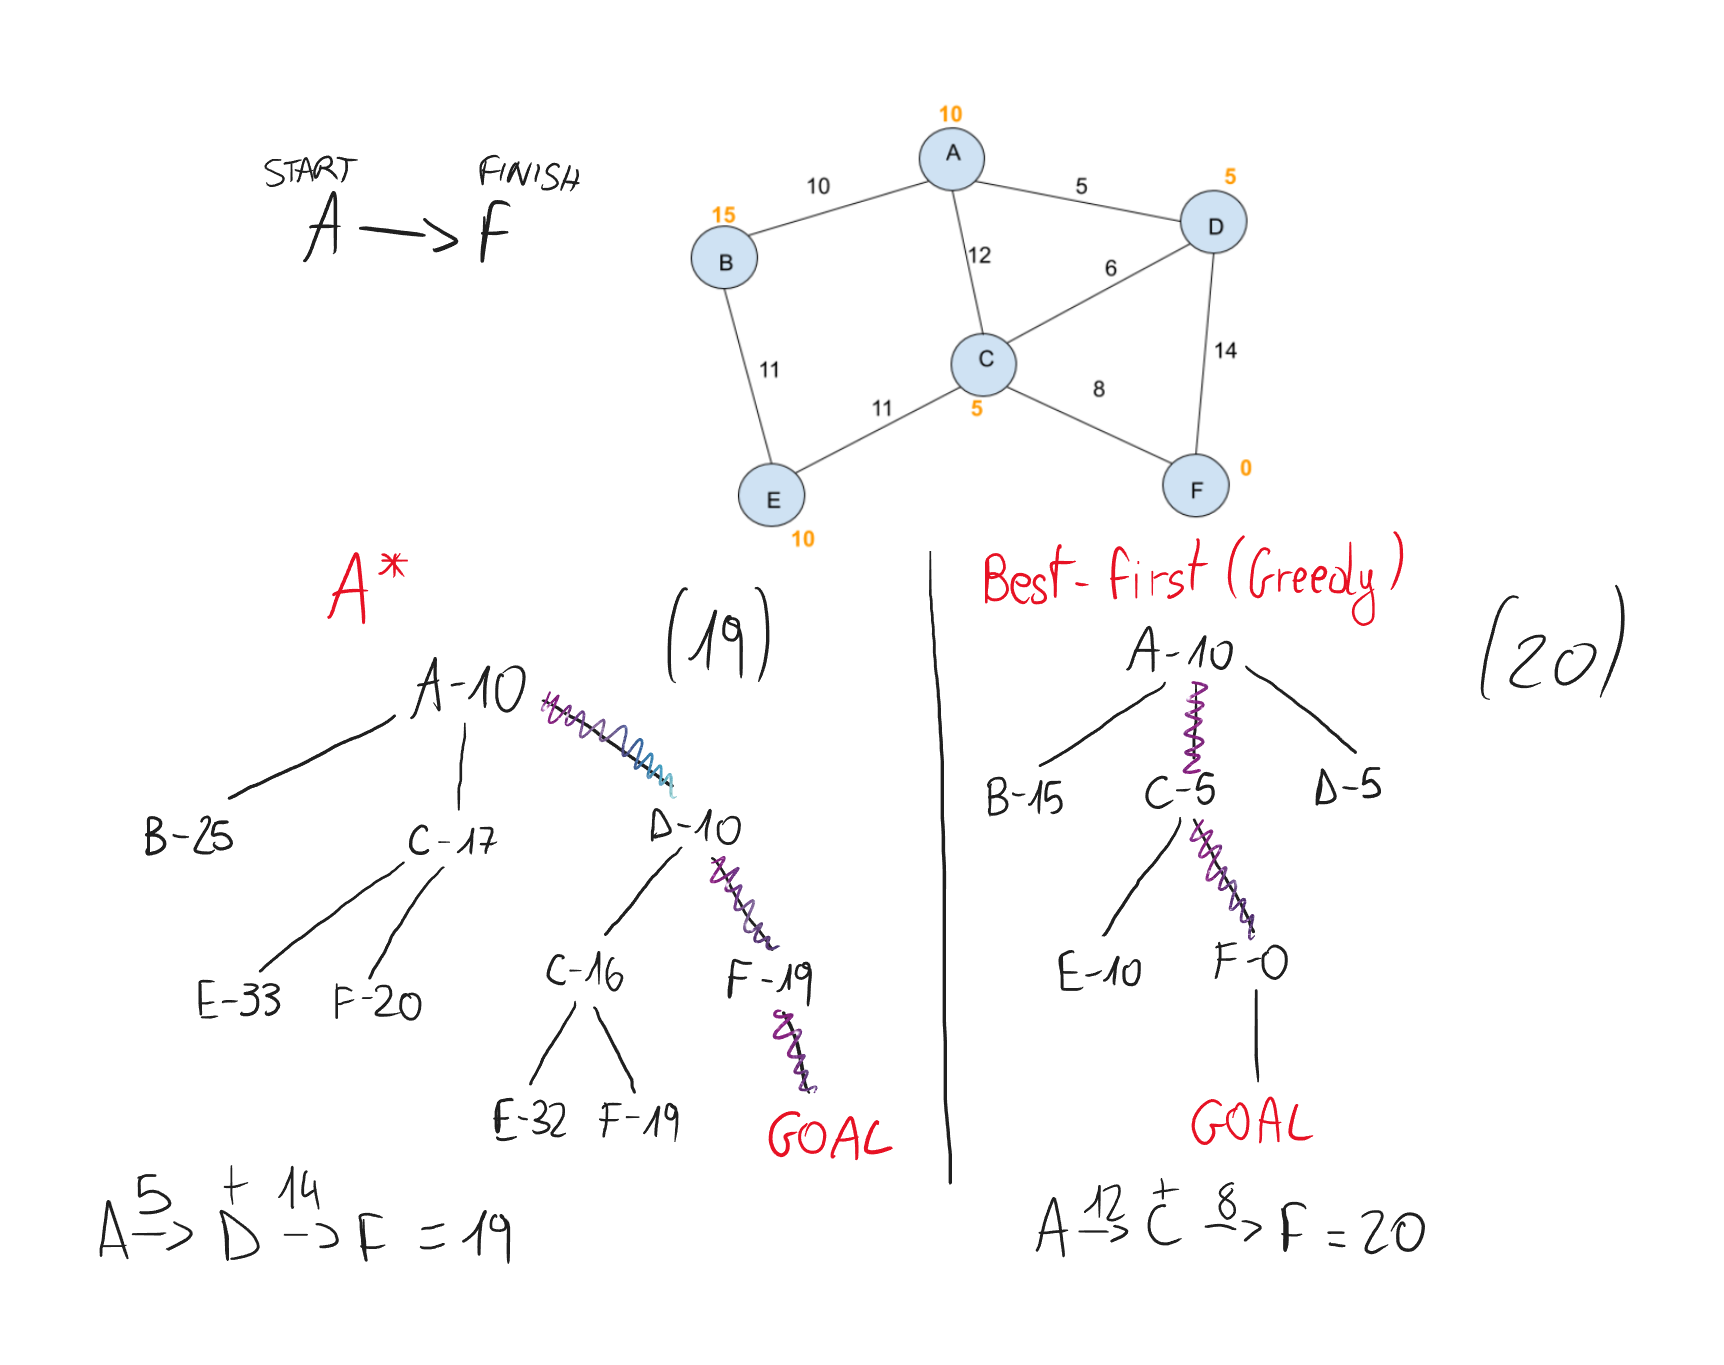 START FINISH
A → F
10
A
10
5
5
D
15
B
12
6
14
11
C
5
8
11
E
10
F
0
A*
(19)
A-10
B-25 C-17 D-10
E-33 F-20 C-16 F-19
E-32 F-19 GOAL
A 5→ D + 14→ F = 19
Best-first (Greedy)
(20)
A-10
B-15 C-5 D-5
E-10 F-0
GOAL
A 12→ C + 8→ F = 20